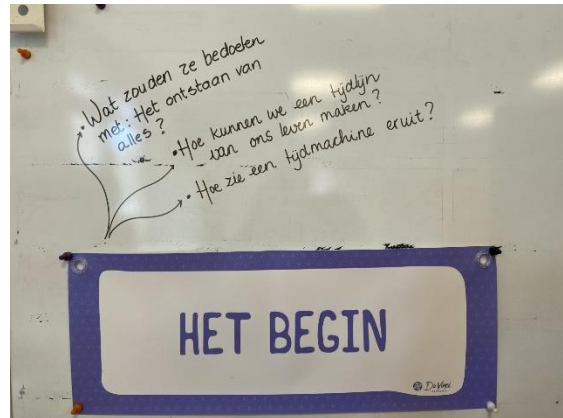 • Wat zouden ze bedoelen
met: Het ontstaan van
alles?
• Hoe kunnen we een tijdlijn
van ons leven maken?
• Hoe zie een tijdmachine eruit?
HET BEGIN
DaVinci